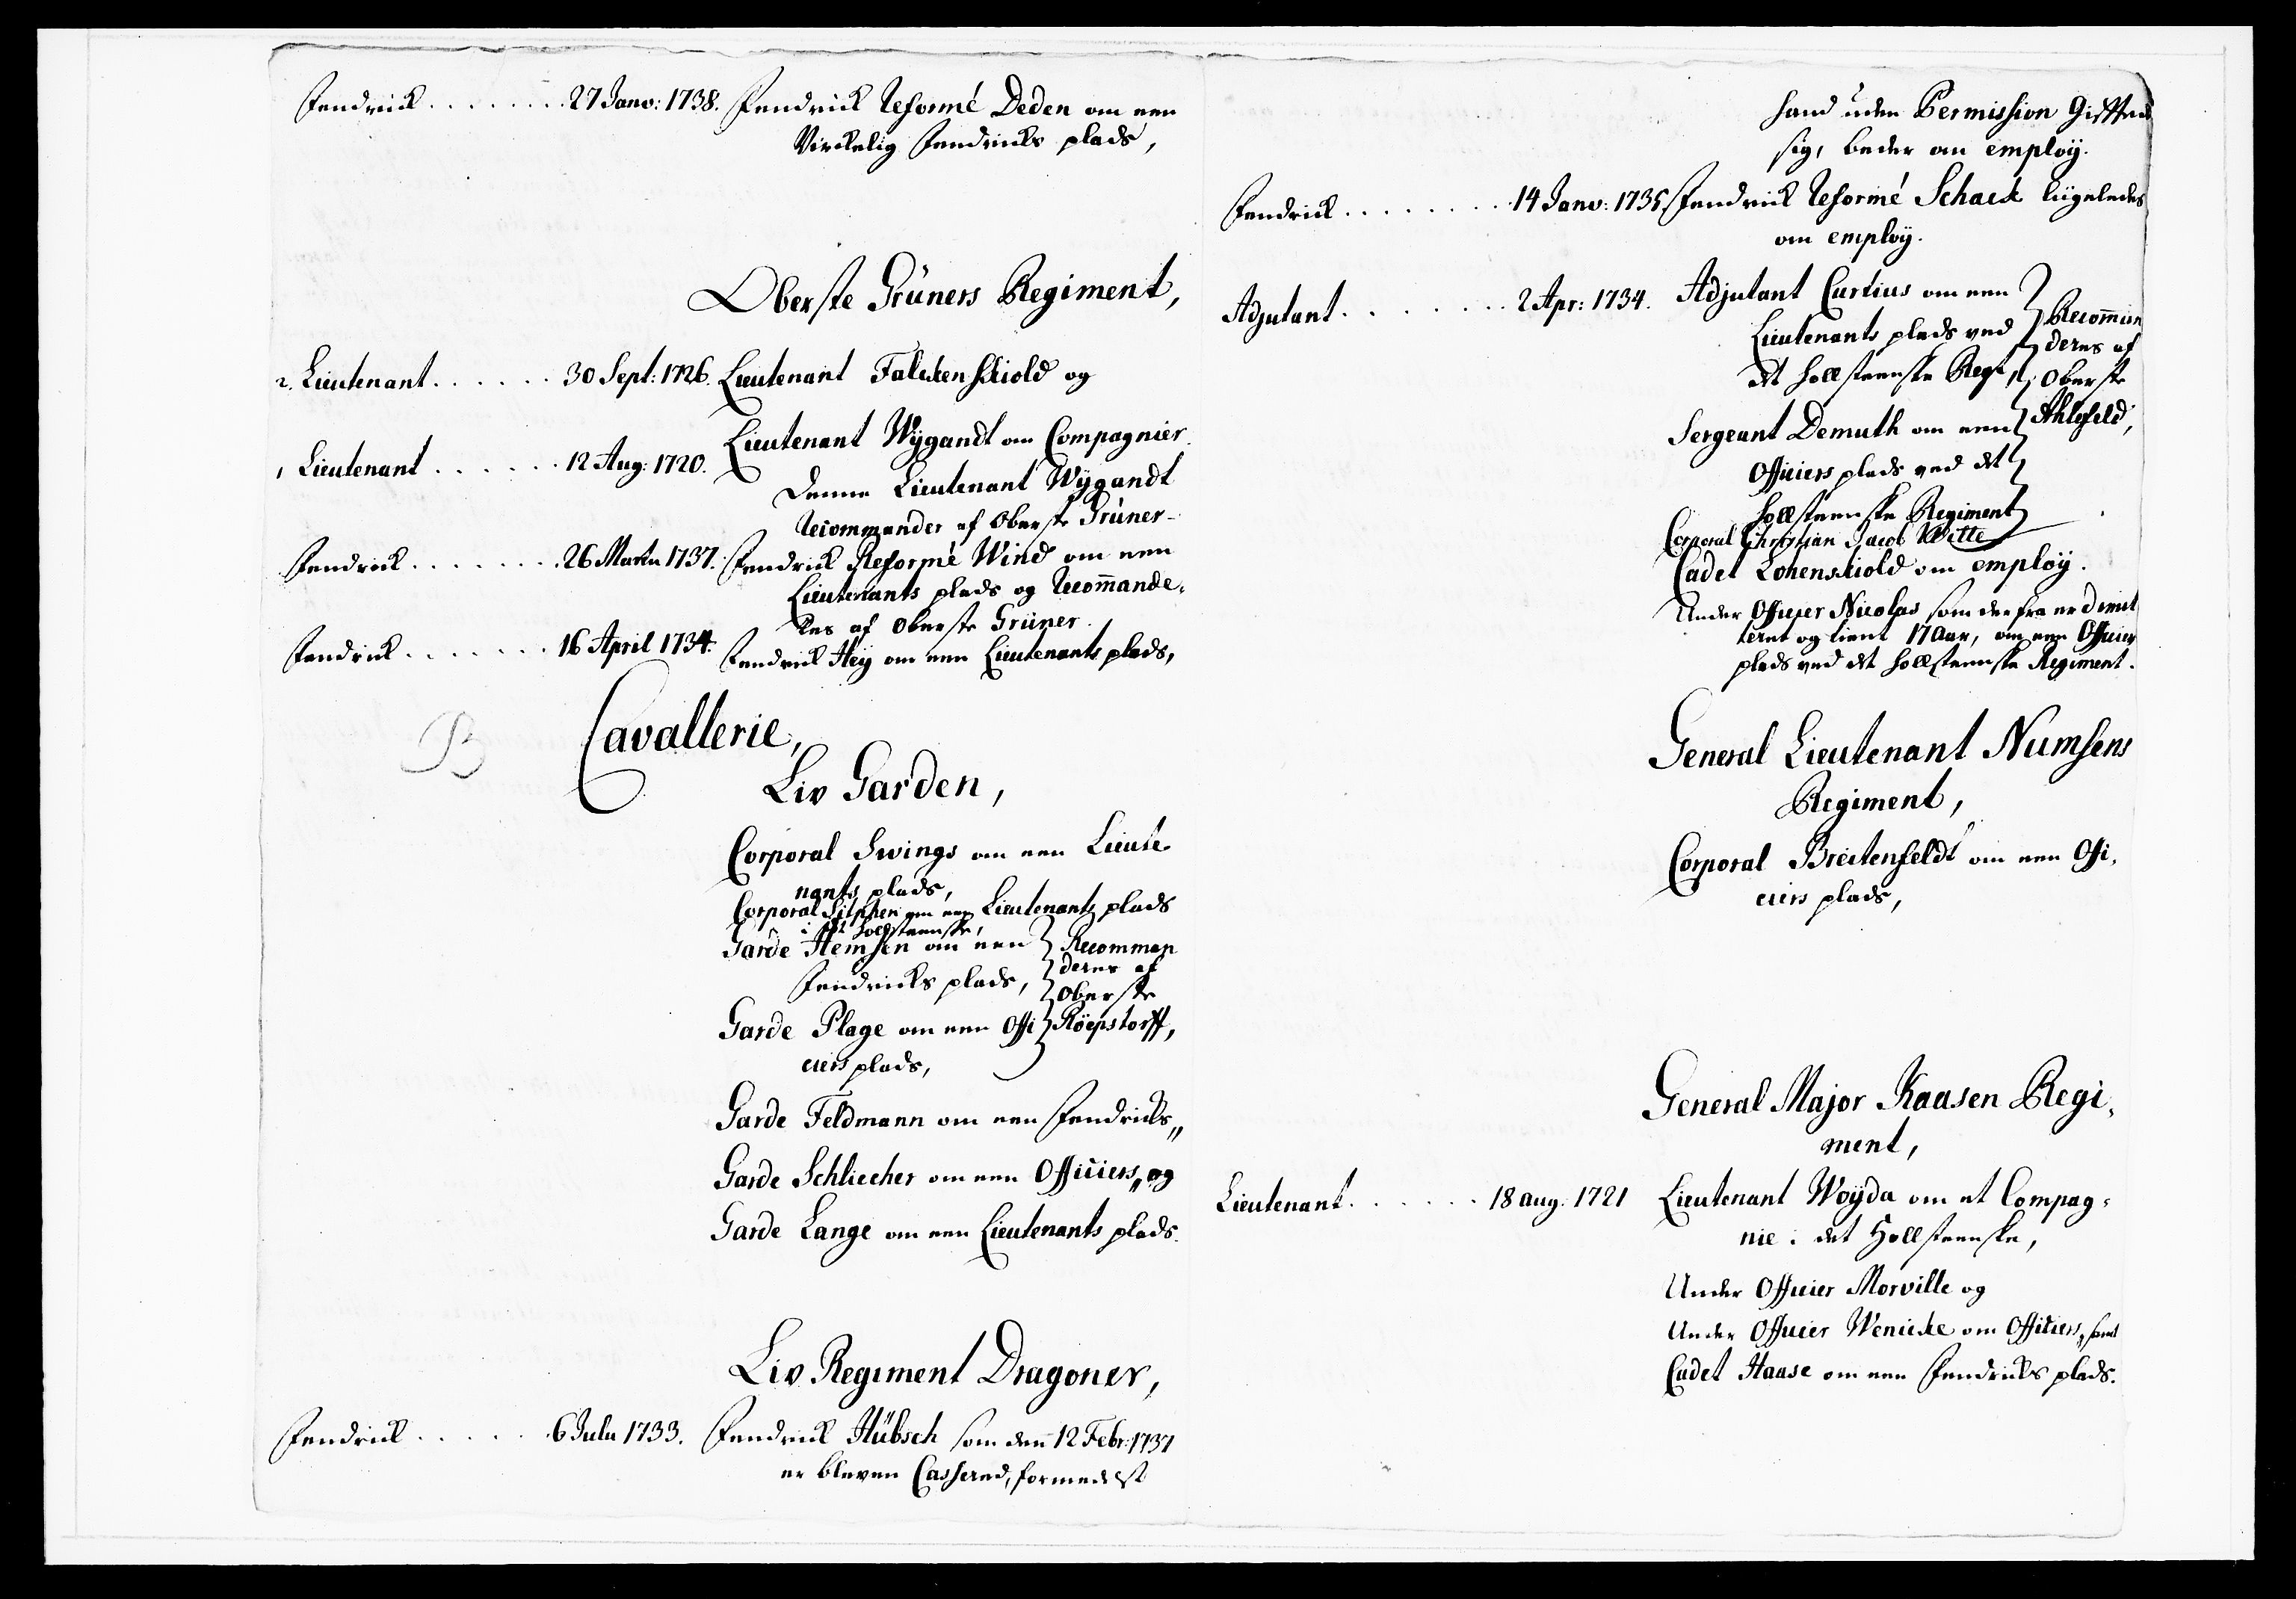 Fendrick . . . . . . . . 27 Janv: 1738. Fendrick Reformé Deden om een
Virckelig Fendricks plads,
Oberste Grüners Regiment,
2. Lieutenant . . . . . . 30 Sept: 1726. Lieutenant Falckenskiold og
1 Lieutenant . . . . . . 12 Aug: 1720. Lieutenant Wÿgandt om Compagnier.
Denne Lieutenant Wÿgandt
Recommander af Oberste Grüner
Fendrick . . . . . . . 26 Martii 1737. Fendrick Reformé Wind om een
Lieutenants plads og Recom̄ande-
res af Oberste Grüner.
Fendrick . . . . . . . 16 April 1734. Fendrick Heÿ om een Lieutenants plads,
B Cavallerie,
Liv Garden,
Corporal Swings om een Lieute
nants plads,
Corporal om een Lieutenants plads
i det Hollsteenske,
Garde Hemsen om een Recomman
Fendricks plads, deres af
Oberste
Garde Plage om een Offi Röepstorff,
ciers plads,
Garde Feldmann om een Fendricks„
Garde Schliecher om een Officiers„ og
Garde Lange om een Lieutenants plads.
Liv Regiment Dragoner,
Fendrick . . . . . 6 Julii 1733. Fendrick Hübsch som den 12 Febr: 1737
er bleven Cassered, formedelst
hand uden Permission Gifftede
sig, beder om employ.
Fendrick . . . . . . . . 14 Janv: 1735. Fendrick Reformé Schack liigeledes
om employ.
Adjutant . . . . . . . 2 Apr: 1734. Adjutant Curtius om een
Lieutenants plads ved Recom̄an
det Hollsteenske Regt, deres af
Oberste
Sergeant Demuth om een Ahlefeld,
Officiers plads ved det
Hollsteenske Regiment
Corporal Christian Jacob Witte
Cadet Lohenskiold om employ.
Under Officier Nicolas som derfra er dimit
teret og tient 17 Aar, om een Officier
plads ved det Hollsteenske Regiment.
General Lieutenant Numsens
Regiment,
Corporal Breitenfeldt om een Offi-
ciers plads,
General Major Kaasen Regi-
ment,
Lieutenant . . . . . . 18 aug. 1721 Lieutenant Woÿda om et Compag-
nie i det Hollsteenske,
Under Officier Morville og
Under Officier Wenicke om Officiers„ samt
Cadet Haase om een Fendricks plads.